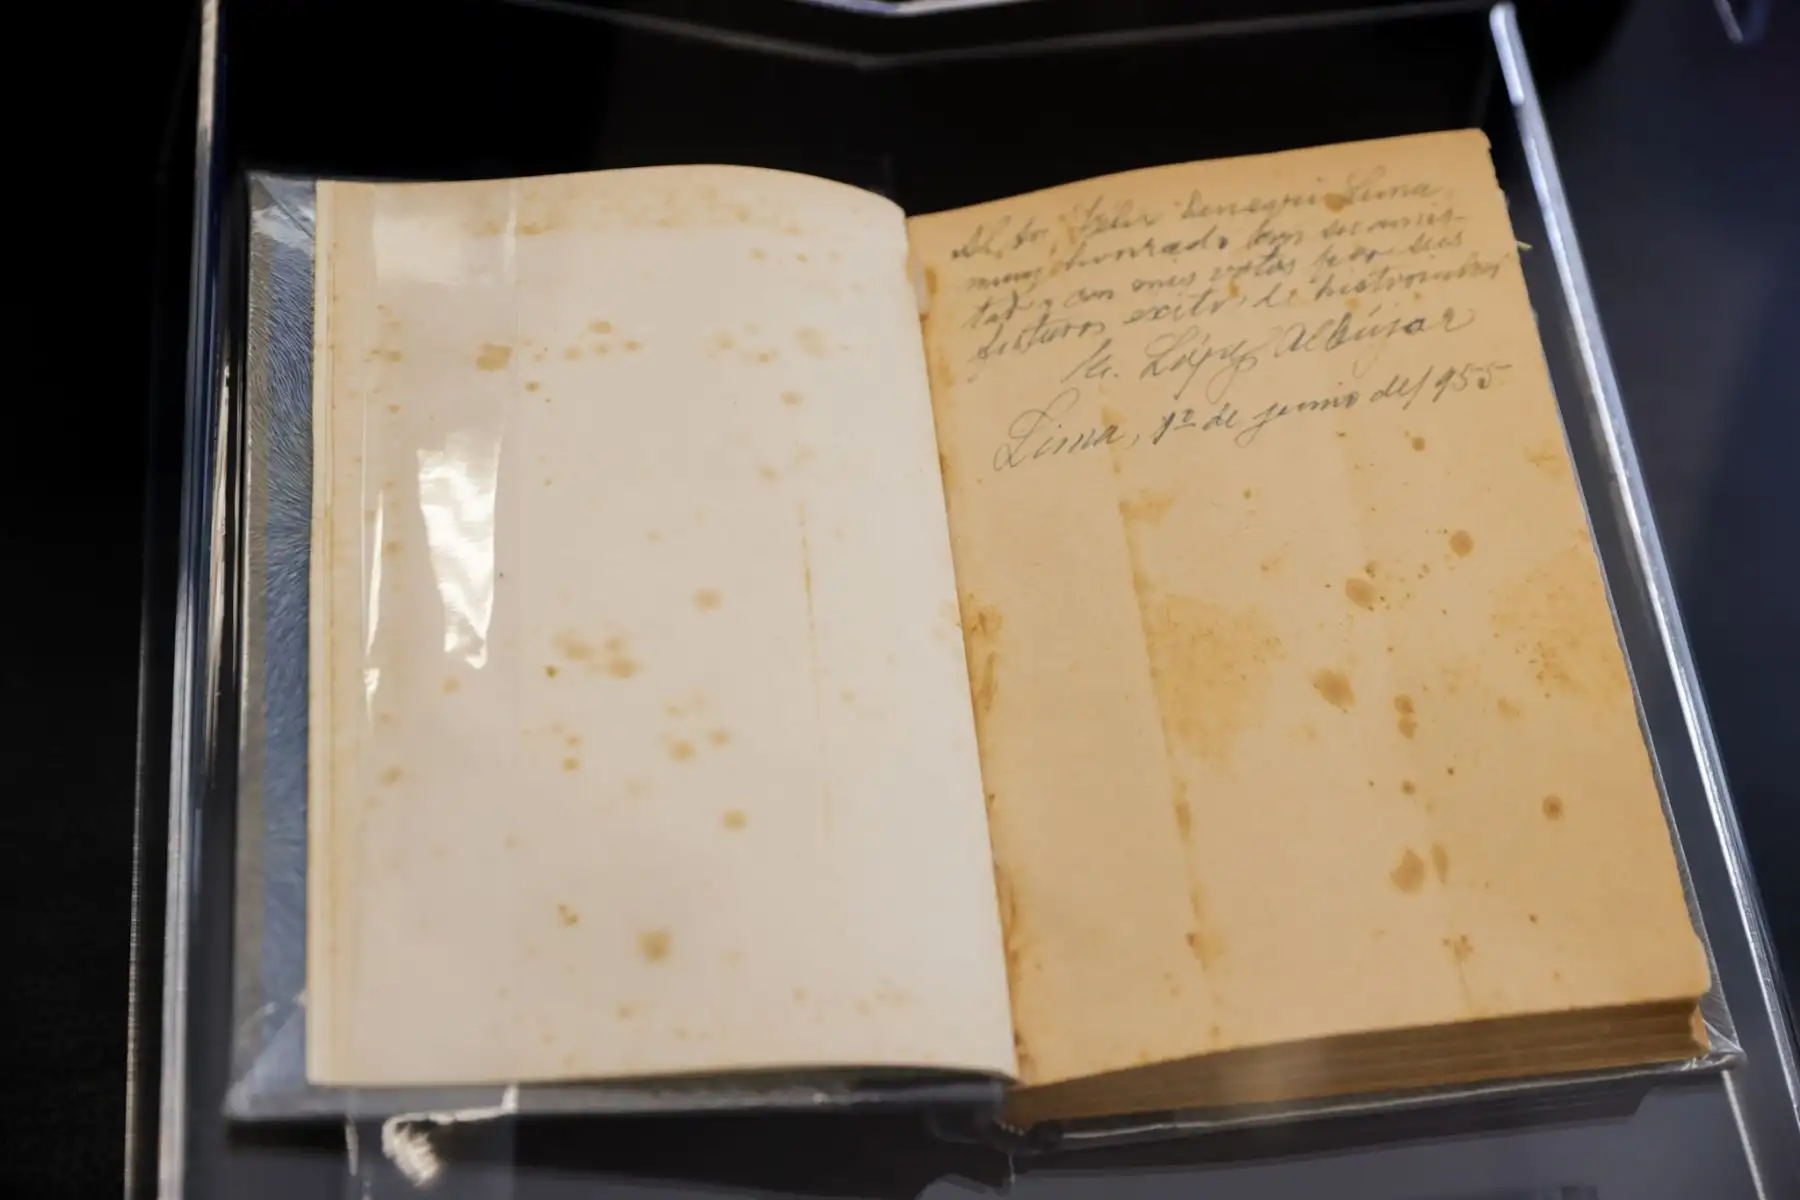 Al Sr. Felix Denegri Luna,
muy honrado con su amis-
tad y con mis votos por sus
futuros exitos de historiador
E. López Albújar
Lima, 1º de junio de 1955